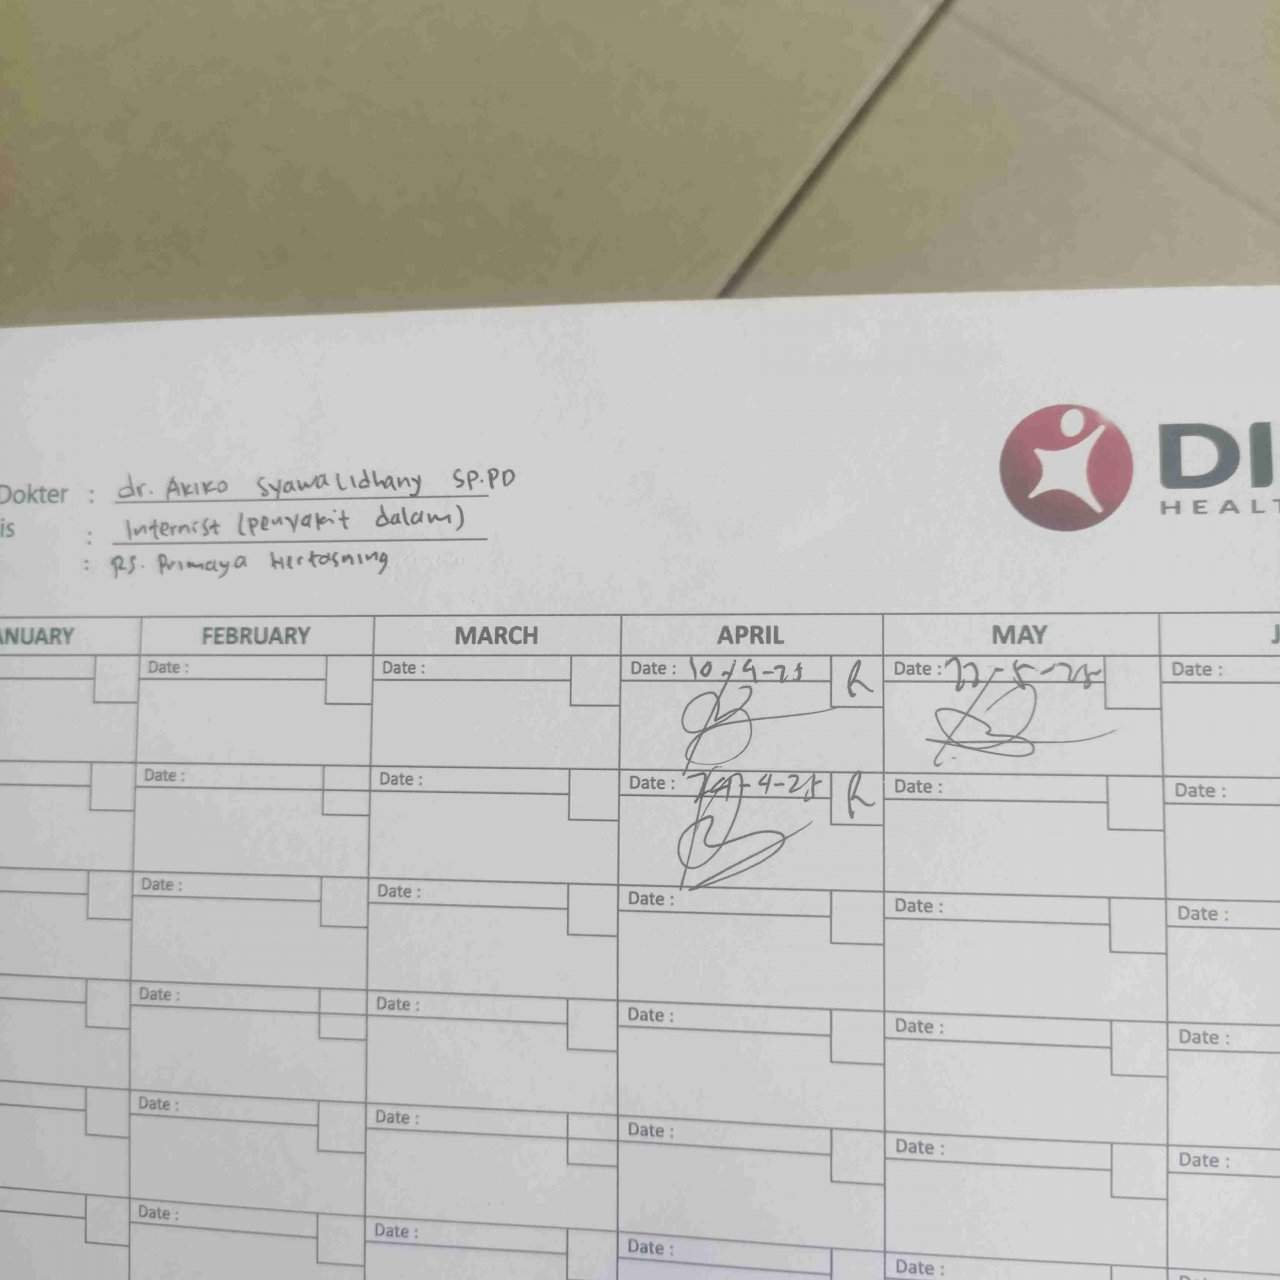 Dokter : dr. Akiko Syawalidhany SP.PD
is : Internist (penyakit dalam)
: RS. Primaya Hertasning
DI
HEALT
ANUARY FEBRUARY MARCH APRIL MAY J
Date : Date : Date : 10-4-25 R Date : 22-5-25 Date :
Date : Date : Date : -4-25 R Date : Date :
Date : Date : Date : Date : Date :
Date : Date : Date : Date : Date :
Date : Date : Date : Date : Date :
Date : Date : Date : Date :